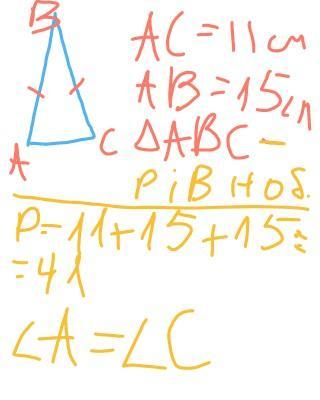 B
A
C
AC=11см
AB=15см
△ABC –
рівноб.
P=11+15+15=
=41
∠A=∠C